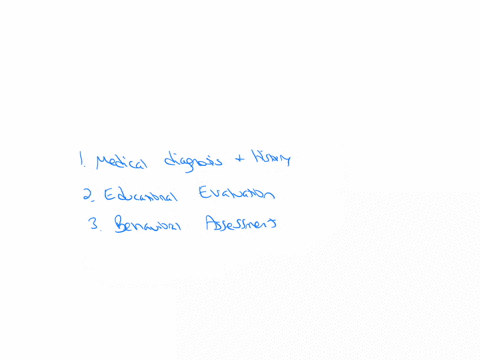 1. Medical diagnosis + history
2. Educational Evaluation
3. Behavioral Assessment